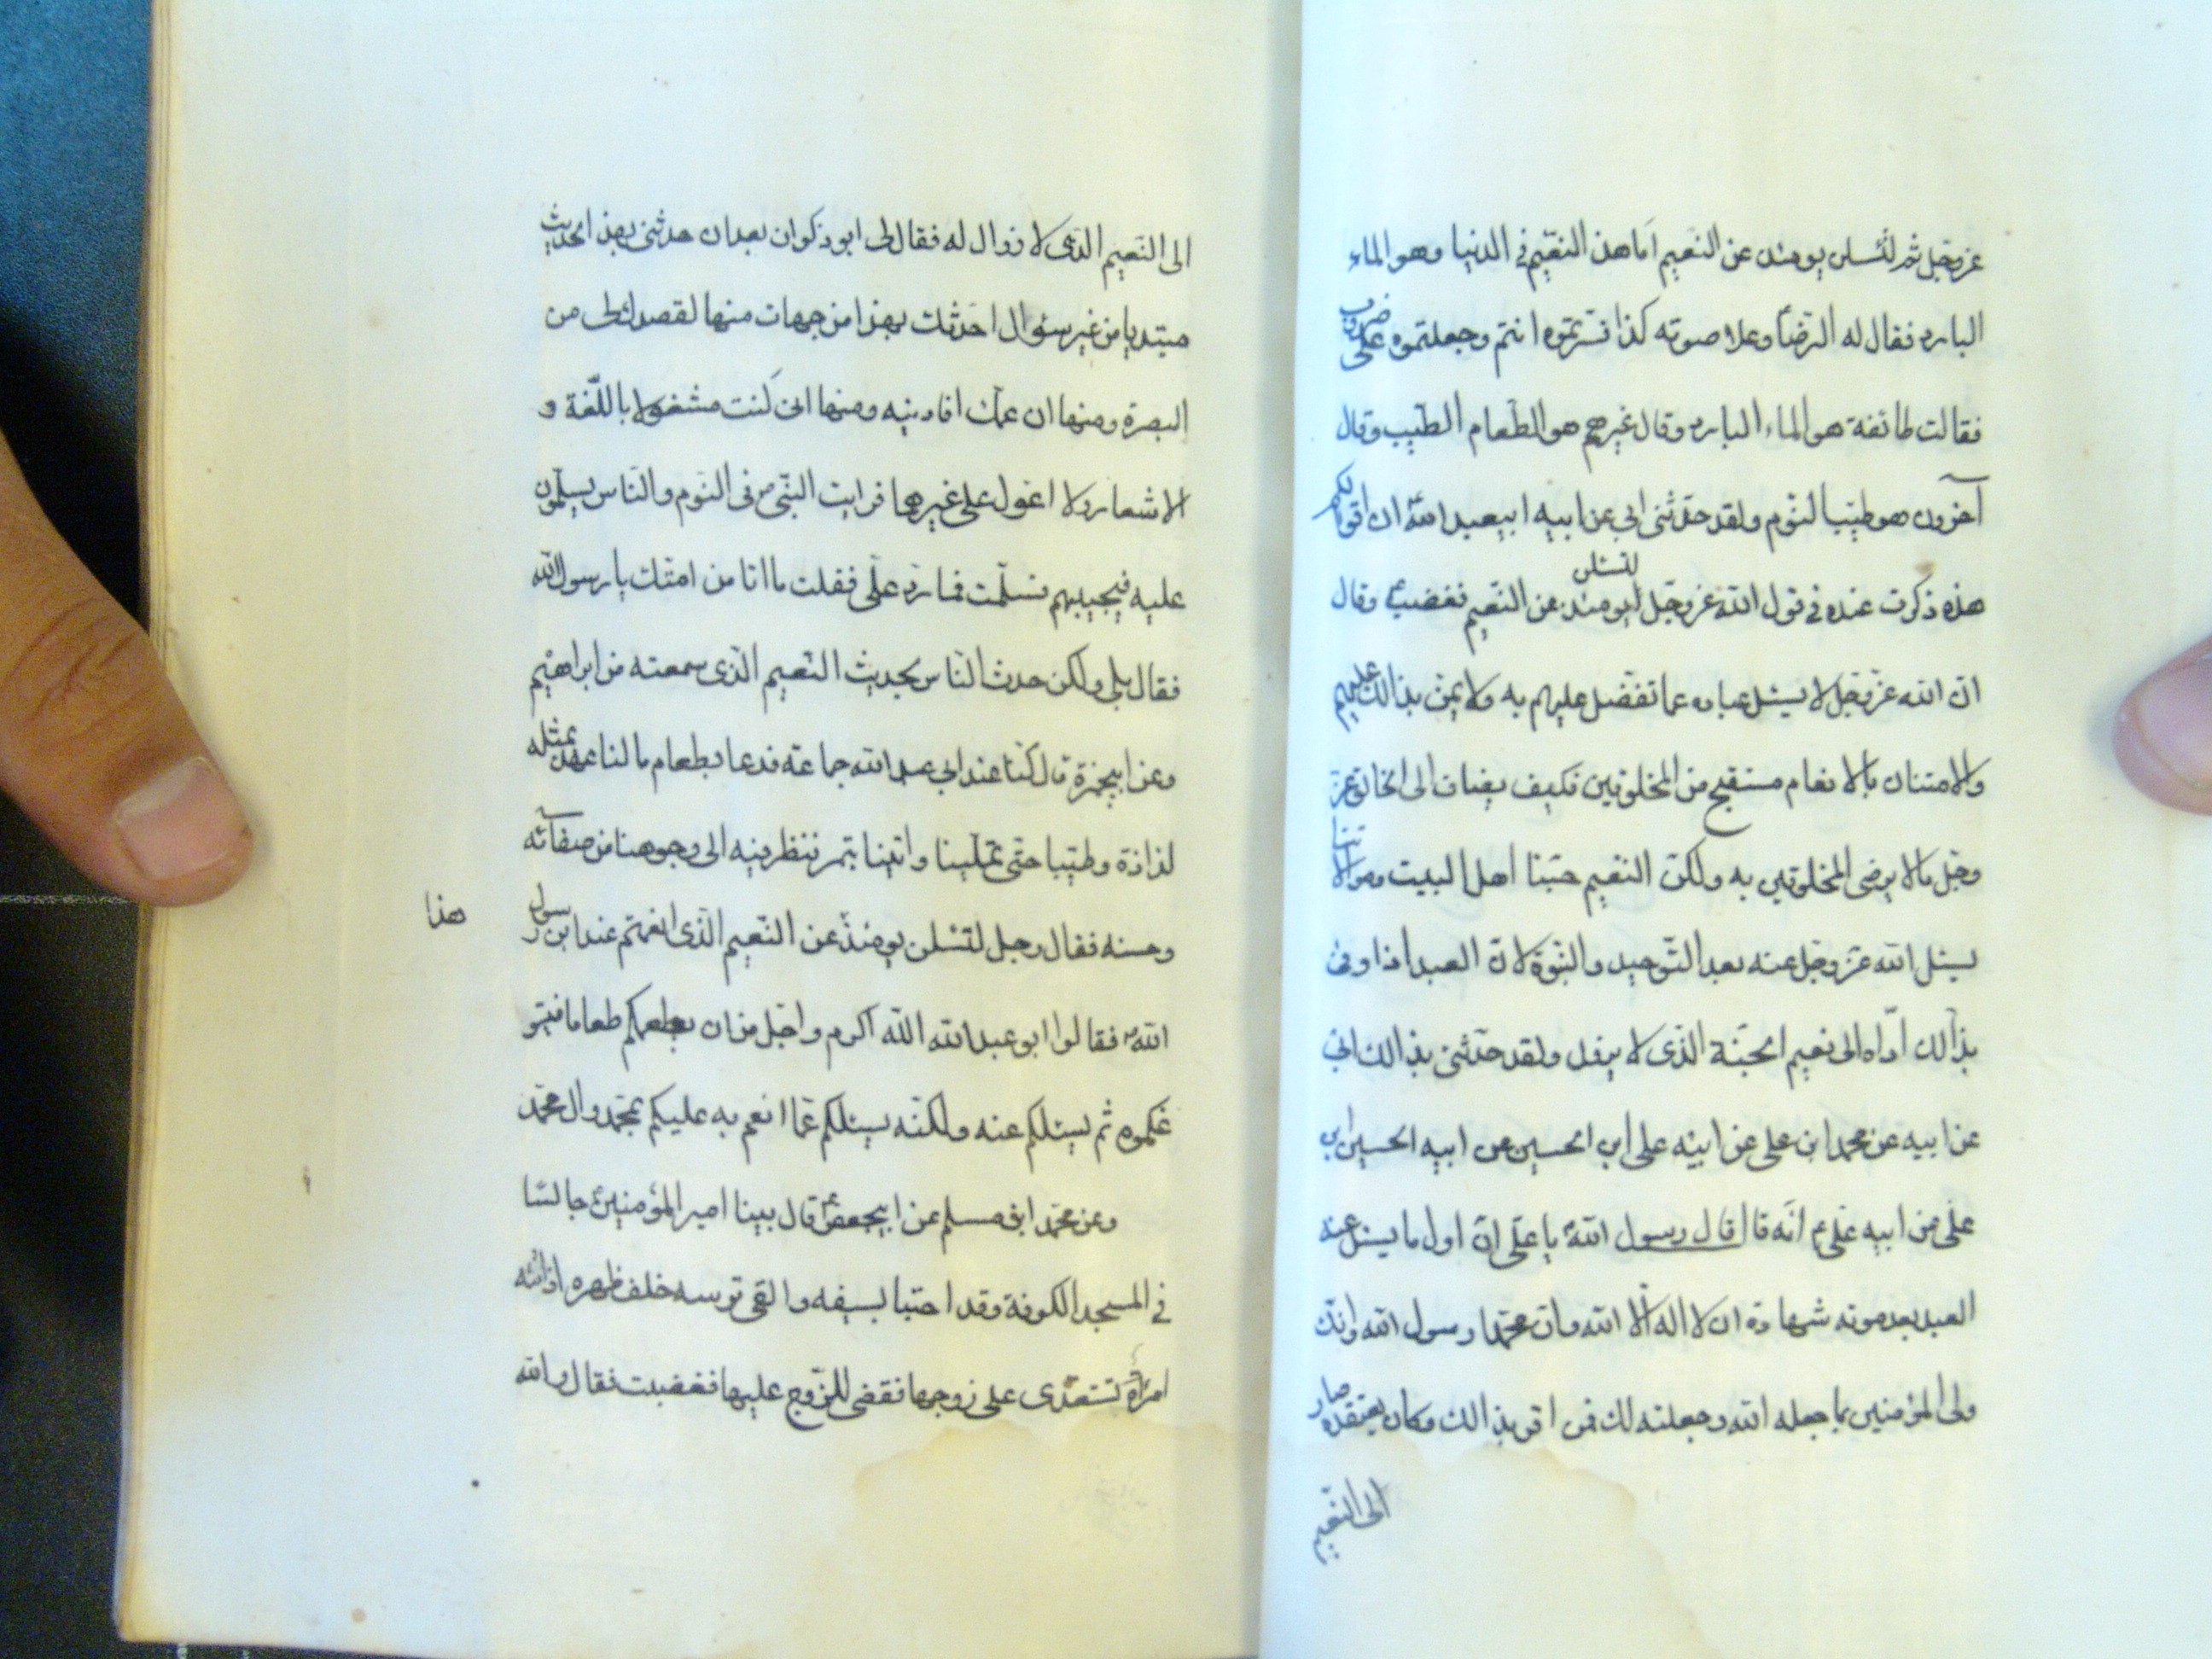 عز وجل ثم لتسئلن يومئذ عن النعيم اما هذ النعيم فى الدنيا وهو الماء
البارد فقال له الرضا وعلا صوته كذا فسرتموه انتم وجعلتموه على ضروب
فقالت طائفة هو الماء البارد وقال غيرهم هو الطعام الطيب وقال
آخرون هو طيب النوم ولقد حدثنى ابى عن ابيه ابيعبد الله ان اقوالكم
هذه ذكرت عنده فى قول الله عز وجل لتسئلن يومئذ عن النعيم فغضب ع وقال
ان الله عز وجل لا يسئل عباده عما تفضل عليهم به ولا يمن بذالك عليهم
والامتنان بالانعام مستقبح من المخلوقين فكيف يضاف الى الخالق عز
وجل ما لا يرضى المخلوقين به ولكن النعيم حبنا اهل البيت وموالاتنا
يسئل الله عز وجل عنه بعد التوحيد والنبوة لان العبد اذا وفى
بذالك اداه الى نعيم الجنة الذى لا يزول ولقد حدثنى بذالك ابى
عن ابيه عن محمد ابن على عن ابيه على ابن الحسين عن ابيه الحسين ابن
على عن ابيه على ع انه قال قال رسول الله يا على ان اول ما يسئل عنه
العبد بعد موته شهادة ان لا اله الا الله وان محمدا رسول الله وانك
ولى المؤمنين بما جعله الله وجعلته لك فمن اقر بذالك وكان يعتقده صار
الى النعيم
الى النعيم الذى لا زوال له فقال لى ابو ذكوان بعد ان حدثنى بهذ الحديث
مبتديا من غير سئوال احدثك بهذا من جهات منها لقصدك لى من
البصرة ومنها ان عمك افادنيه ومنها انى كنت مشغولا باللغة و
الاشعار ولا اعول على غيرهما فرايت النبى ص فى النوم والناس يسلمون
عليه فيجيبهم فسلمت فما رد على فقلت ما انا من امتك يا رسول الله
فقال بلى ولكن حدث الناس بحديث النعيم الذى سمعته من ابراهيم
وعن ابيحمزة قال كنا عند ابى عبد الله جماعة فدعا بطعام ما لنا عهد بمثله
لذاذة وطيبا حتى تملينا واتينا بتمر ننظر فيه الى وجوهنا من صفائه
وحسنه فقال رجل لتسئلن يومئذ عن النعيم الذى انعمتم عند ابن رسول
هذا
الله ص فقالوا ابو عبد الله الله اكرم واجل من ان يطعمكم طعاما فيسو
غكموه ثم يسئلكم عنه ولكنه يسئلكم عما انعم به عليكم بمحمد وال محمد
وعن محمد ابن مسلم عن ابيجعفر ع قال بينا امير المؤمنين ع جالسا
فى المسجد الكوفة وقد احتبا بسيفه والقى ترسه خلف ظهره اذ اتته
امراة تستعدى على زوجها فقضى للزوج عليها فغضبت فقال والله